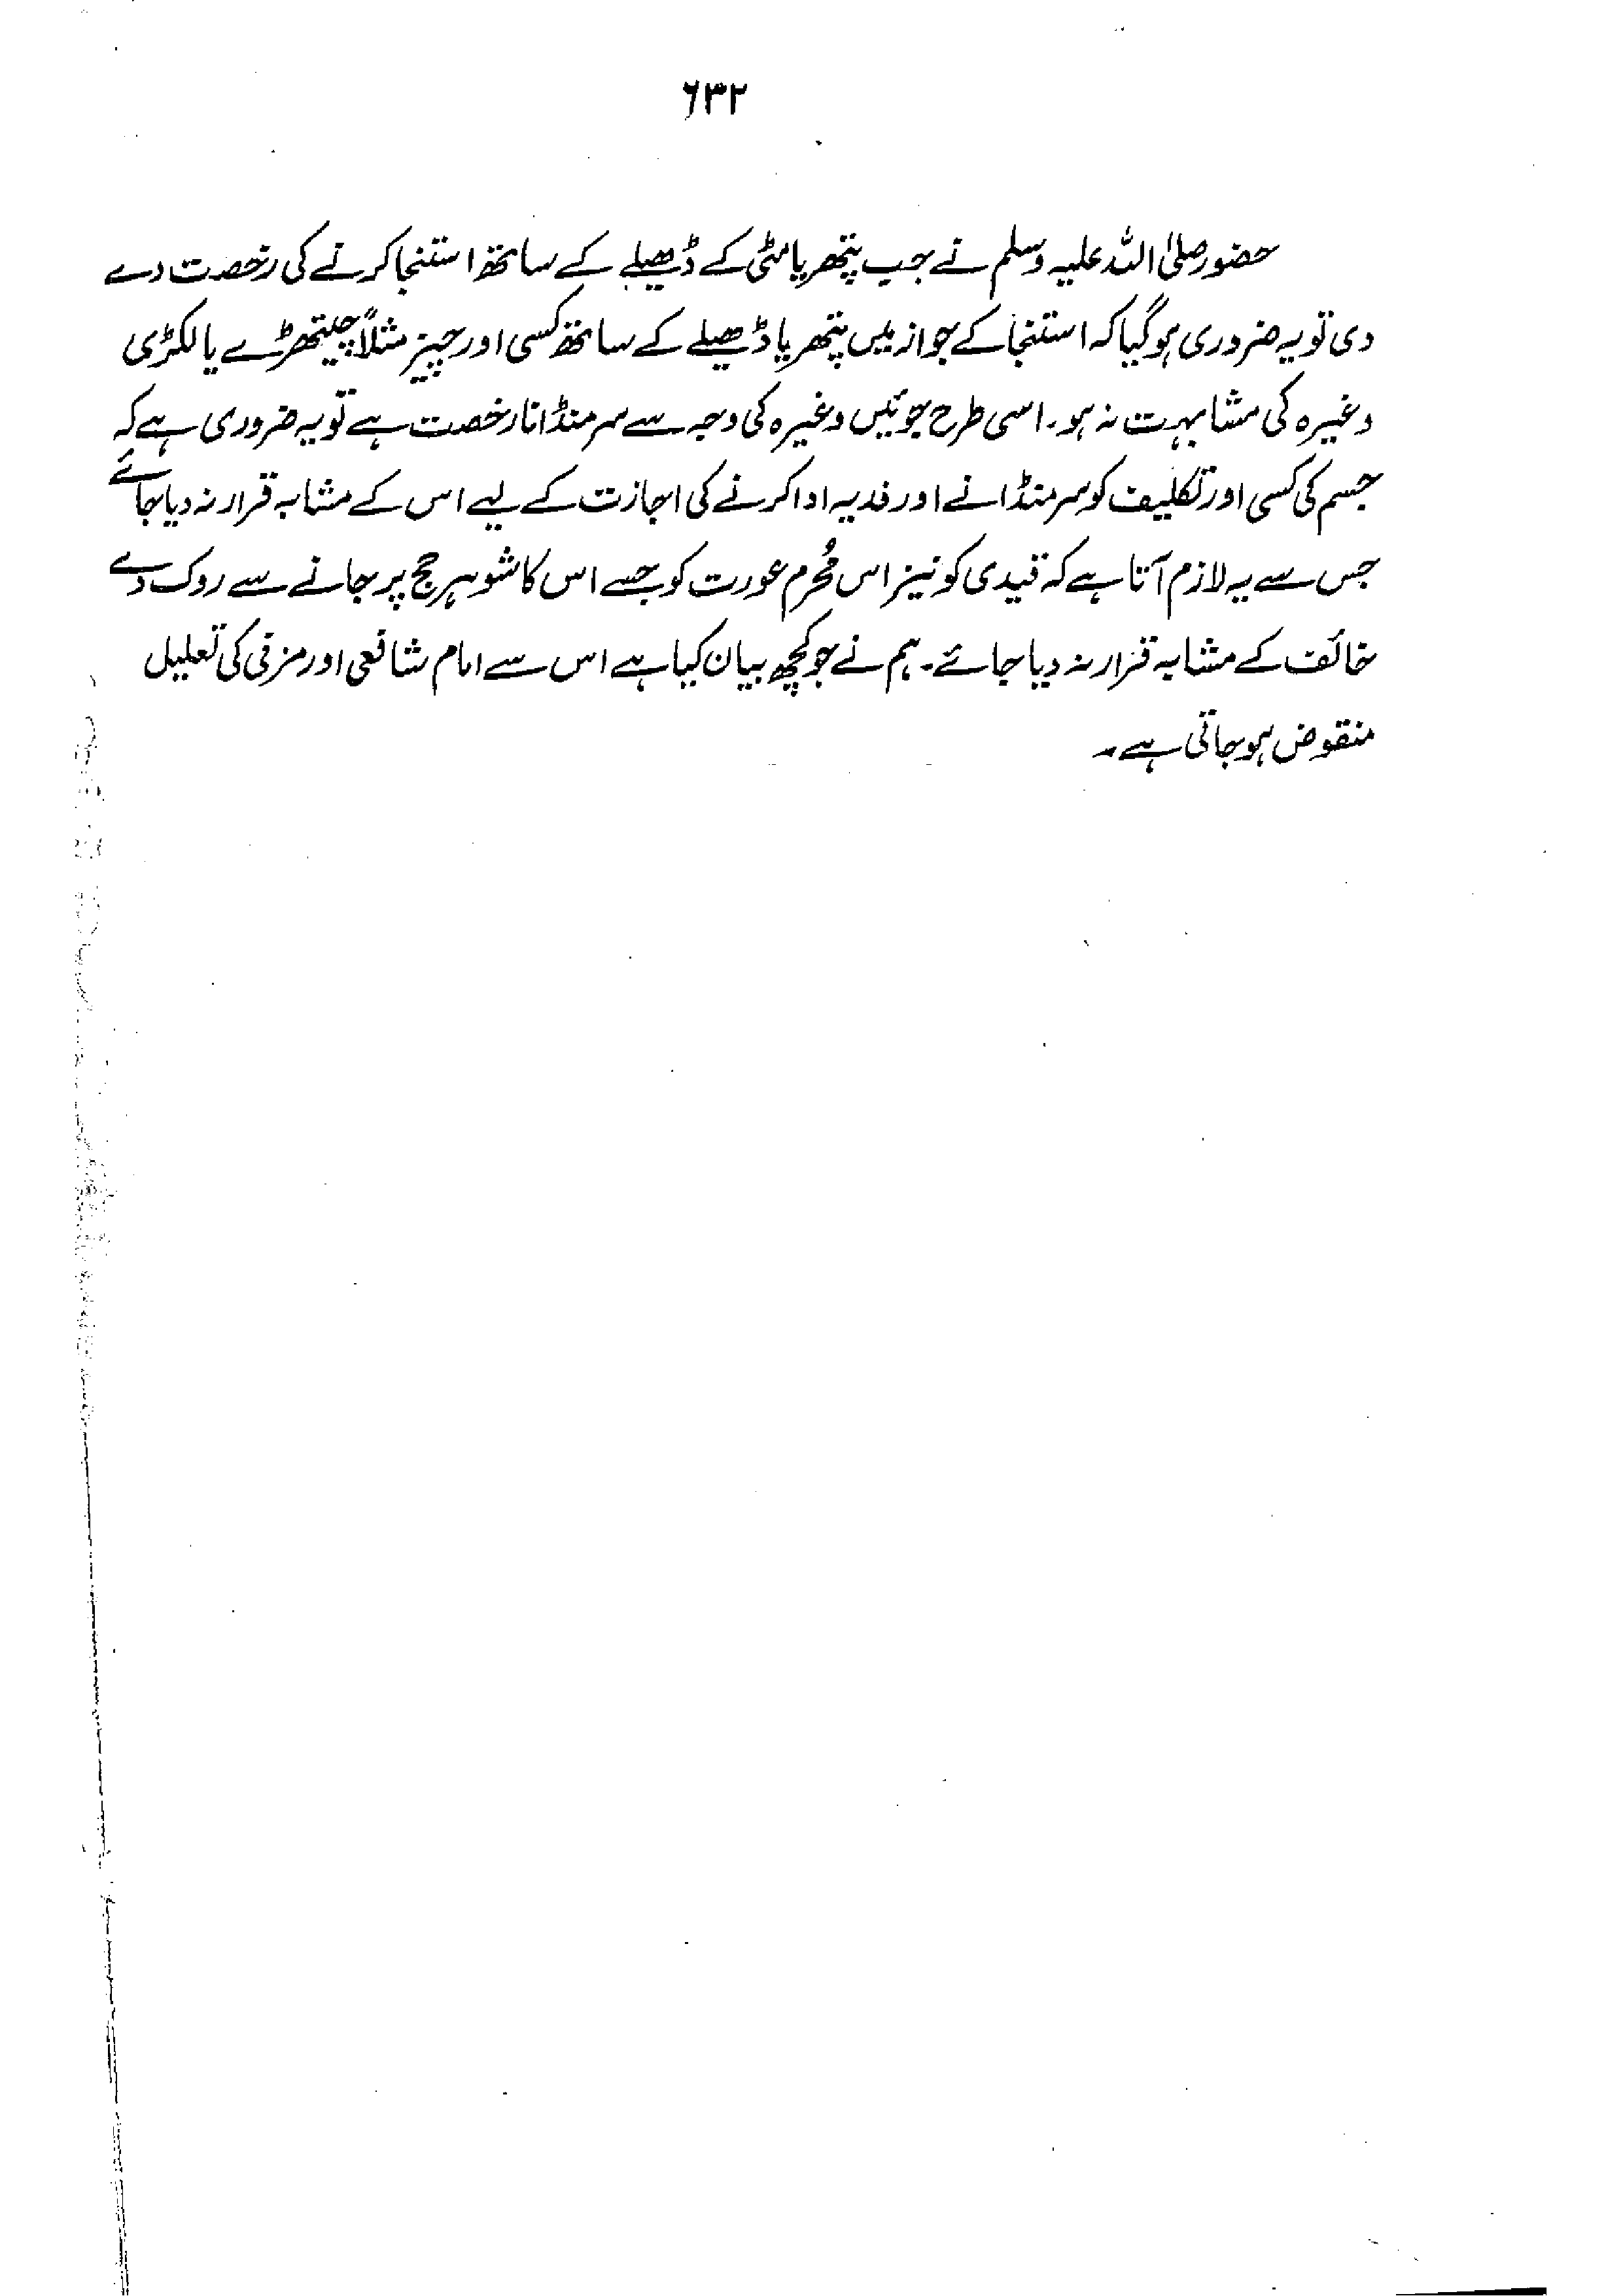 ٦٣٢
حضور صلی اللہ علیہ وسلم نے جب پتھر یا مٹی کے ڈھیلے کے ساتھ استنجا کرنے کی رخصت دے
دی تو یہ ضروری ہو گیا کہ استنجا کے جواز میں پتھر یا ڈھیلے کے ساتھ کسی اور چیز مثلاً چیتھڑے یا لکڑی
وغیرہ کی مشابہت نہ ہو۔ اسی طرح جوئیں وغیرہ کی وجہ سے سر منڈانا رخصت ہے تو یہ ضروری ہے کہ
جسم کی کسی اور تکلیف کو سر منڈانے اور فدیہ ادا کرنے کی اجازت کے لیے اس کے مشابہ قرار نہ دیا جائے
جس سے یہ لازم آتا ہے کہ قیدی کو نیز اس مُحرم عورت کو جسے اس کا شوہر حج پر جانے سے روک دے
خائف کے مشابہ قرار نہ دیا جائے۔ ہم نے جو کچھ بیان کیا ہے اس سے امام شافعی اور مزنی کی تعلیل
منقوض ہو جاتی ہے۔